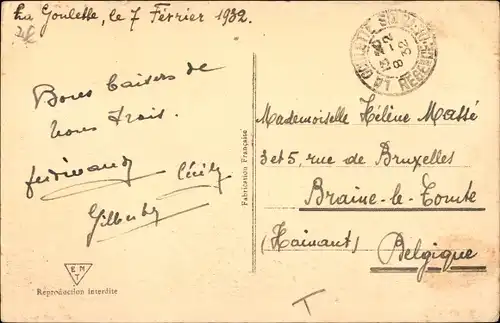 La Goulette, le 7 Février 1932.
Bons baisers de
nous trois.
Ferdinand
Cécile
Gilberte
E M
T
Reproduction interdite
Fabrication Française
LA GOULETTE
8-2
32
Mademoiselle Hélène Massé
3 et 5, rue de Bruxelles
Braine-le-Comte
(Hainaut)
Belgique
T